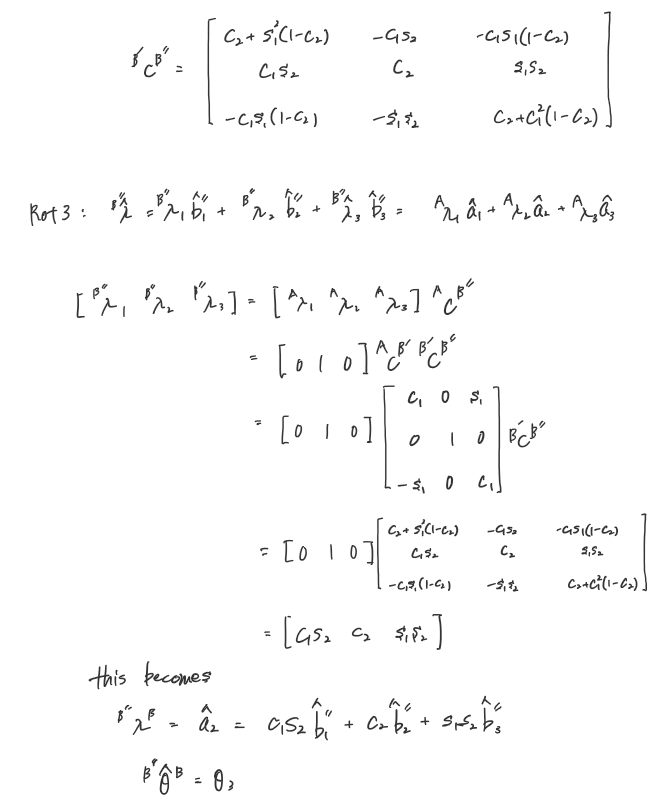 B'CB'' = [ C₂ + S₁²(1-C₂) -C₁S₂ -C₁S₁(1-C₂)
C₁S₂ C₂ S₁S₂
-C₁S₁(1-C₂) -S₁S₂ C₂+C₁²(1-C₂) ]
Rot 3 : B''λ̂ = B''λ₁ b̂₁'' + B''λ₂ b̂₂'' + B''λ₃ b̂₃'' = Aλ₁ â₁ + Aλ₂ â₂ + Aλ₃ â₃
[ B''λ₁ B''λ₂ B''λ₃ ] = [ Aλ₁ Aλ₂ Aλ₃ ] ACB''
= [ 0 1 0 ] ACB' B'CB''
= [ 0 1 0 ] [ C₁ 0 S₁
0 1 0
-S₁ 0 C₁ ] B'CB''
= [ 0 1 0 ] [ C₂ + S₁²(1-C₂) -C₁S₂ -C₁S₁(1-C₂)
C₁S₂ C₂ S₁S₂
-C₁S₁(1-C₂) -S₁S₂ C₂+C₁²(1-C₂) ]
= [ C₁S₂ C₂ S₁S₂ ]
this becomes
B''λB = â₂ = C₁S₂ b̂₁'' + C₂ b̂₂'' + S₁S₂ b̂₃''
B''θ̂B = θ₃